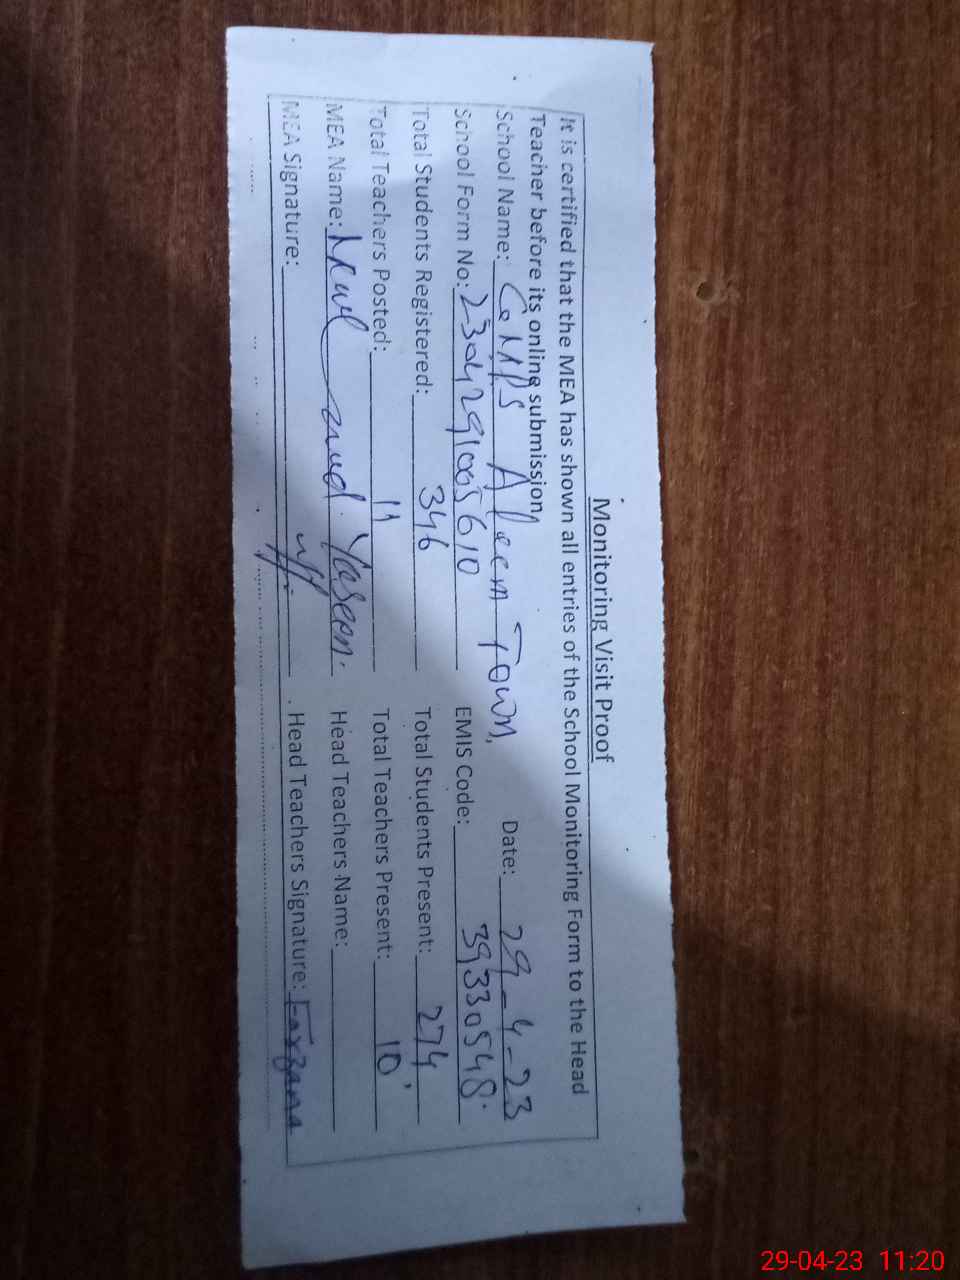 Monitoring Visit Proof
It is certified that the MEA has shown all entries of the School Monitoring Form to the Head
Teacher before its online submission
School Name: GMPS Aleem Town, Date: 29-4-23
School Form No: 2304291005610 EMIS Code: 39330548
Total Students Registered: 346 Total Students Present: 274
Total Teachers Posted: 11 Total Teachers Present: 10
MEA Name: Yaseen. Head Teachers Name:
MEA Signature: Head Teachers Signature: Farzana
29-04-23 11:20